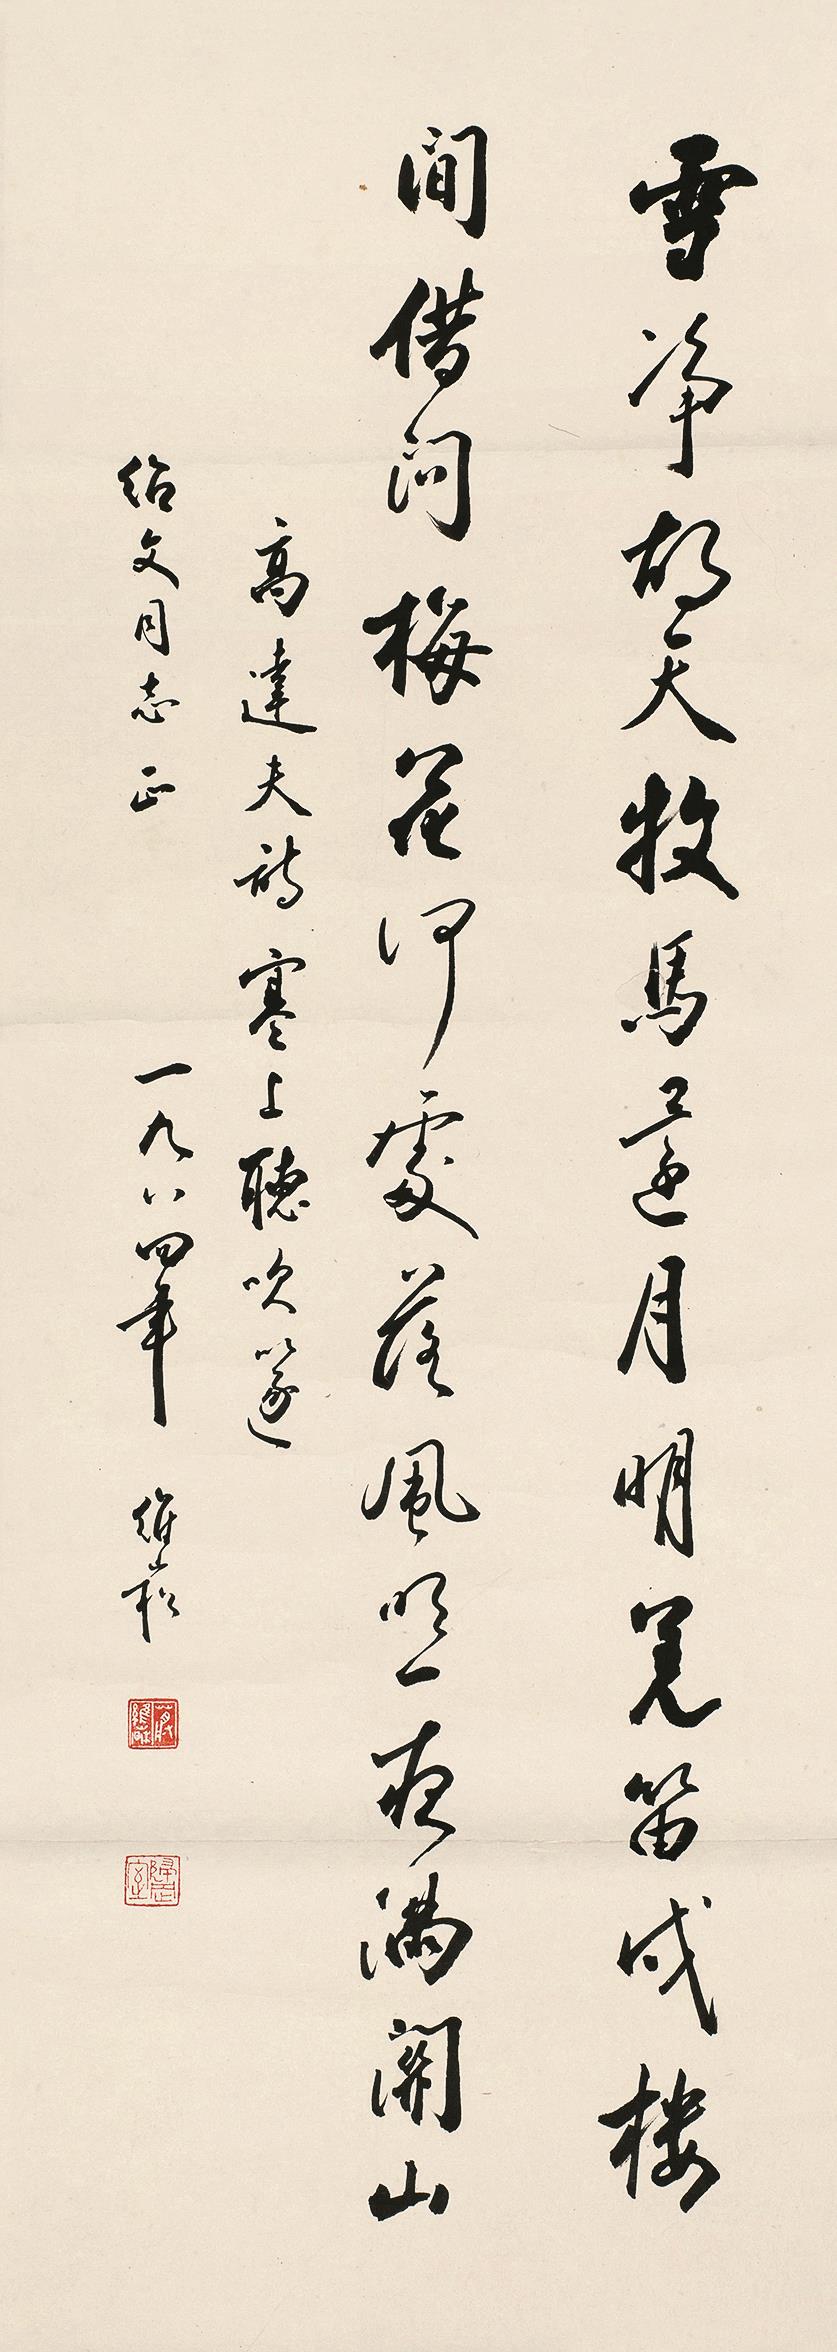 雪净胡天牧馬還月明羌笛戍楼
間借问梅花何處落風吹一夜滿關山
高達夫詩塞上聽吹篴
紹文同志正 一九八四年 維崧
蔣維崧